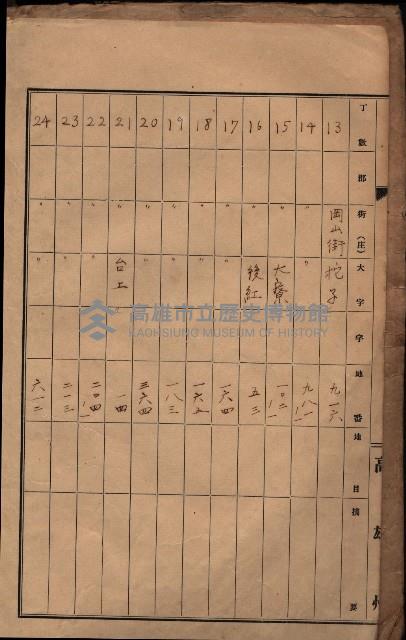 丁數 郡 街(庄) 大字 字 地番 地目 摘要
13 岡山街 挖子 九一六
14 〃 〃 九八ノ一
15 〃 大寮 一〇二ノ一
16 〃 後紅 五三
17 〃 〃 一六四
18 〃 〃 一六五
19 〃 〃 一八三
20 〃 〃 三六四
21 〃 台上 一四
22 〃 〃 二〇四ノ一
23 〃 〃 二一三
24 〃 〃 六一二
高雄州
高雄市立歷史博物館
KAOHSIUNG MUSEUM OF HISTORY